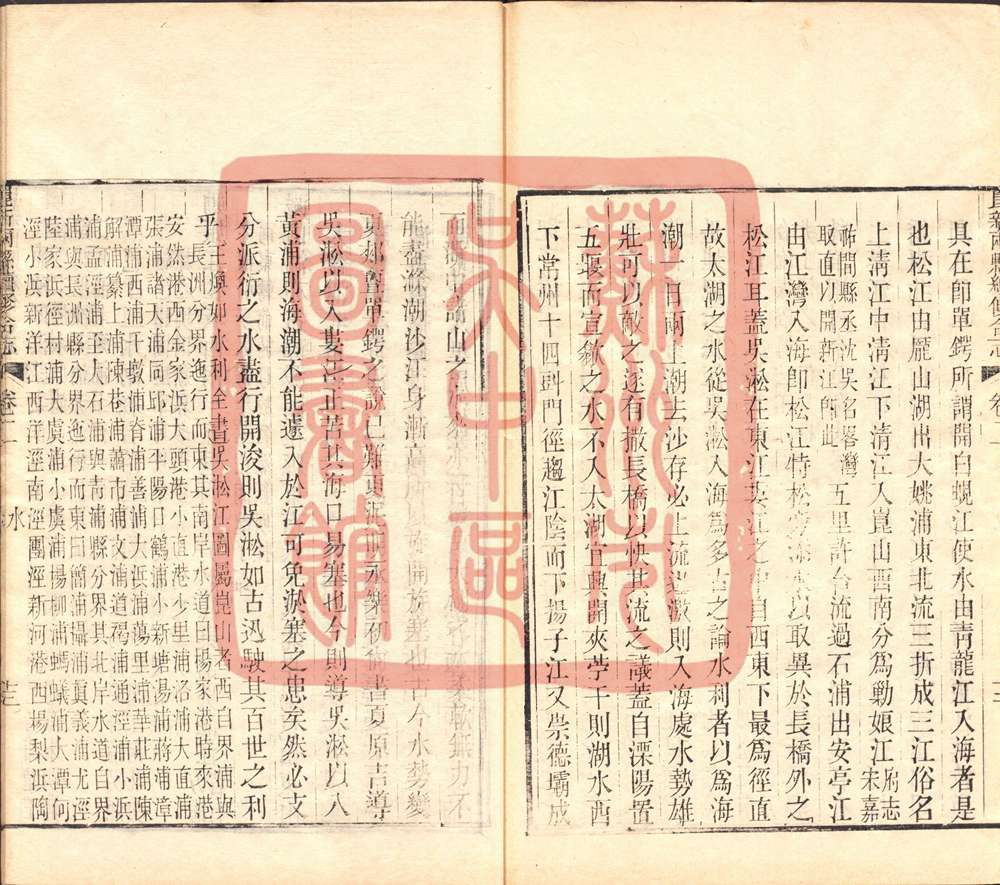 具在卽單鍔所謂開白蜆江使水由青龍江入海者是
也松江由龎山湖出大姚浦東北流三折成三江俗名
上淸江中淸江下淸江入崑山西南分爲勤娘江府志
宋嘉
祐間縣丞沈
取直以開新江
吳名畧灣
卽此
五里許合流過石浦出安亭江
由江灣入海卽松江特松以取異於長橋外之
松江耳蓋吳淞在東江婁江之自西東下最爲徑直
故太湖之水從吳淞入海爲多古之論水利者以爲海
潮一日兩上潮去沙存必上流激則入海處水勢雄
壯可以敵之遂有撤長橋以快其流之議蓋自溧陽置
五堰而宣歙之水不入太湖宜興開夾苧干則湖水西
下常州十四斗門徑趨江陰而下揚子江又崇德壩成
而山之無力不
能盡滌潮沙江身漸高開旋塞也古今水勢變
夏郟亶單鍔之說已難永樂初尚書夏原吉導
吳淞以入婁江正苦其海口易塞也今則導吳淞以入
黃浦則海潮不能遽入於江可免淤塞之患矣然必支
分派衍之水盡行開浚則吳淞如古迅駛其百世之利
乎
王煥如水利全書吳淞江圖屬崑山者西自界浦與
長洲分界迤行而東其南岸水道曰楊家港時來港
安然港西金家浜大頭港小直港少里浦洛浦大直浦
張浦諸天浦同邱浦平陽口鶴浦小新塘湯浦蔣浦漳
潭浦西浦千墩浦脊浦善浦大浜浦蕩里浦華莊浦陳
解浦纂上浦陳巷浦蕭市浦文浦道褐浦通涇浦小浜
浦孟涇浦至大石浦與靑浦縣分界其北岸水道自界
浦與長洲縣分界迤行而東曰簡浦攝浦眞義浦尤涇
陸家浜徑村浦大虞浦小虞浦楊柳浦螞蟻浦大潭向
涇小浜新洋江西洋涇南涇團涇新河港西楊梨浜陶
卷十二
水